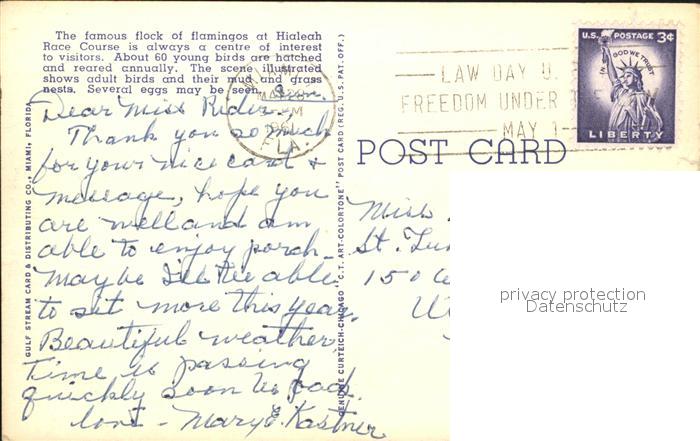 The famous flock of flamingos at Hialeah
Race Course is always a centre of interest
to visitors. About 60 young birds are hatched
and reared annually. The scene illustrated
shows adult birds and their mud and grass
nests. Several eggs may be seen.
Sun.
Dear Miss Rider,
Thank you so much
for your nice card &
message, hope you
are well and am
able to enjoy porch.
Maybe I'll be able
to sit more this year.
Beautiful weather.
Time is passing
quickly soon be back.
love - Mary E. Kastner
GULF STREAM CARD & DISTRIBUTING CO., MIAMI, FLORIDA
GENUINE CURTEICH-CHICAGO "C.T. ART-COLORTONE" POST CARD (REG. U.S. PAT. OFF.)
MIAMI
PM
1961
FLA.
LAW DAY U.
FREEDOM UNDER
MAY 1
U.S. POSTAGE 3¢
IN GOD WE TRUST
LIBERTY
POST CARD
Miss
St.
150
privacy protection
Datenschutz